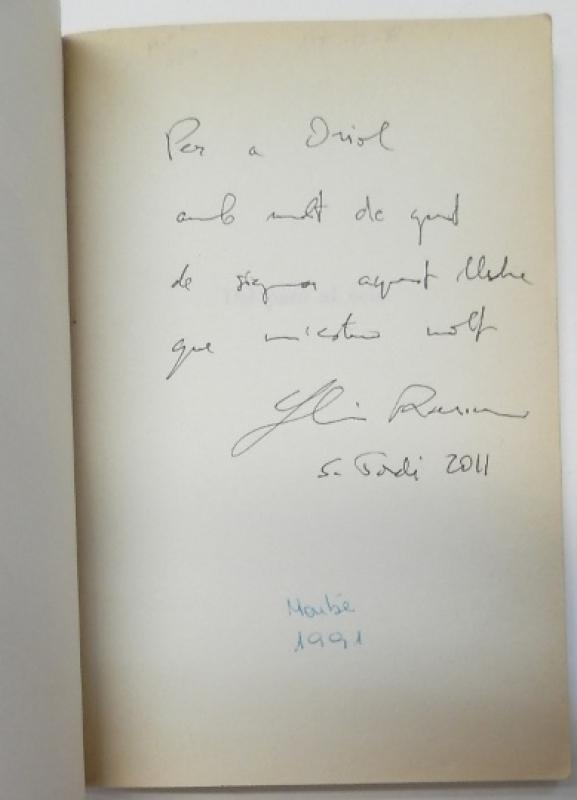 Per a Oriol
amb molt de gust
de signar aquest llibre
que m'estimo molt
S. Jordi 2011
1991